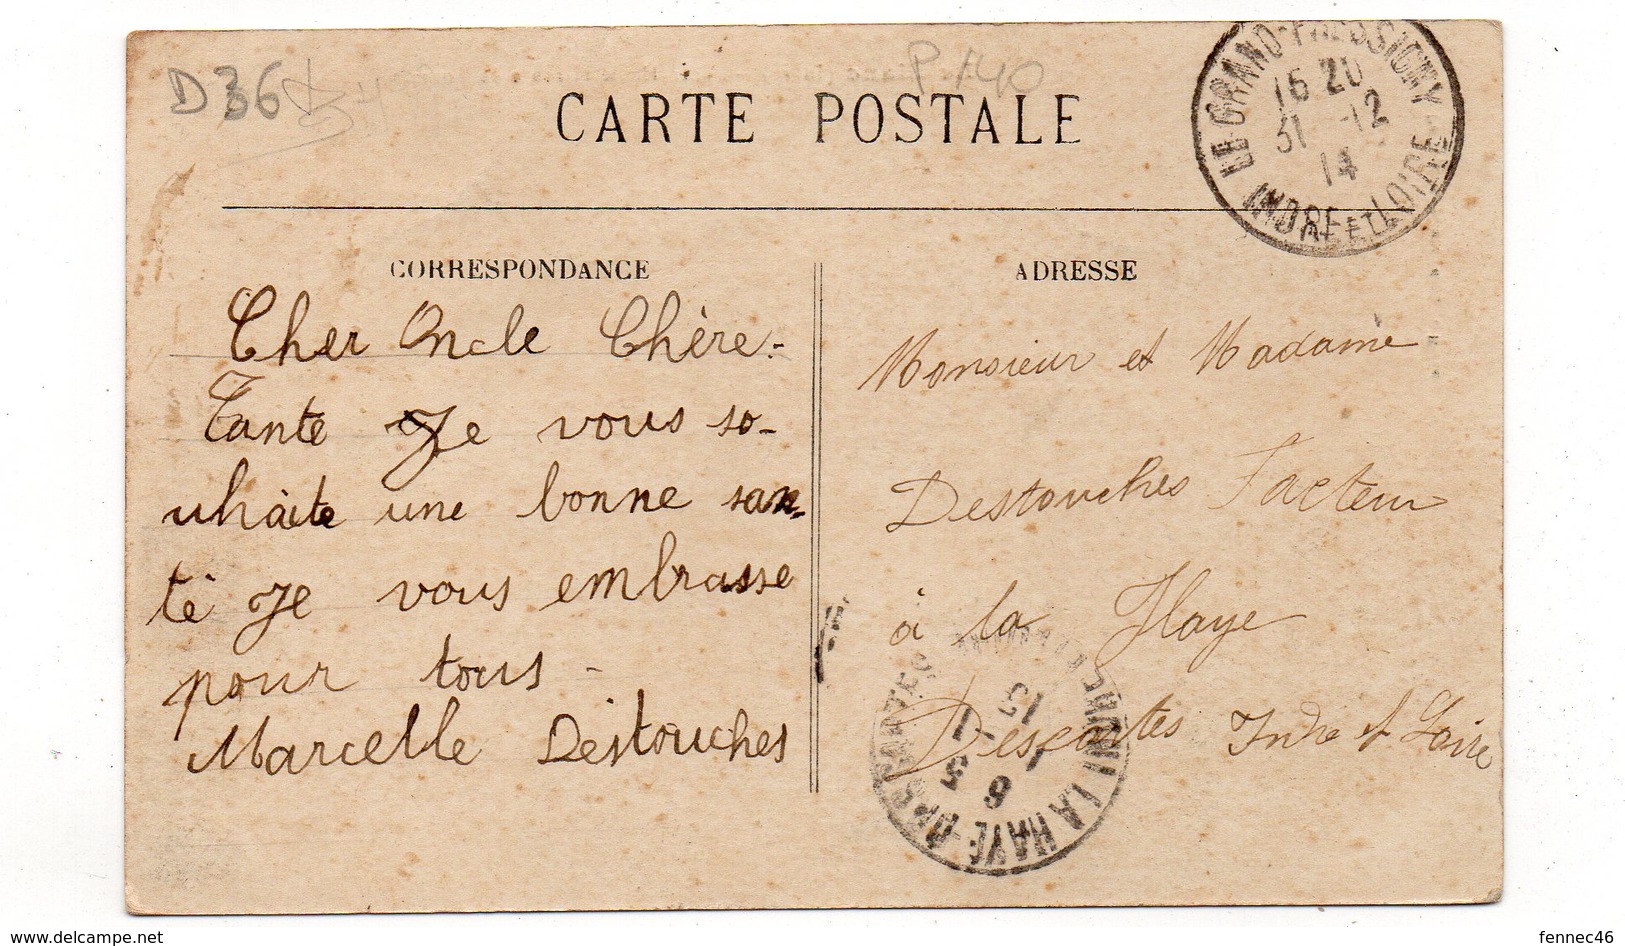 D 36
P 140
CARTE POSTALE
LE GRAND-PRESSIGNY
16 20
31 -12
14
INDRE ET LOIRE
CORRESPONDANCE
Cher Oncle Chère.-
Tante Je vous so-
uhaite une bonne san-
té Je vous embrasse
pour tous -
Marcelle Destouches
ADRESSE
Monsieur et Madame
Destouches Facteur
à la Haye
Descartes Indre et Loire
LA HAYE-DESCARTES
6
1 - 1
15
www.delcampe.net
fennec46